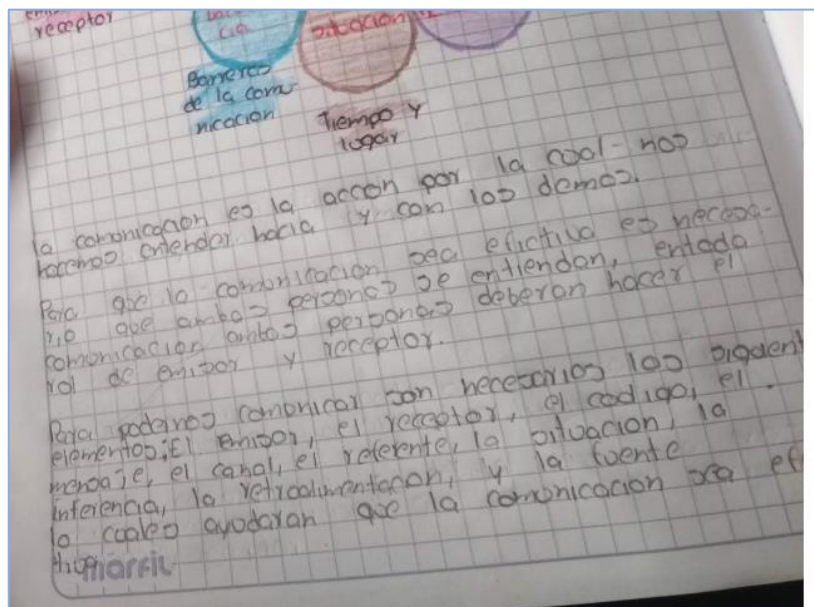 receptor
cia
situacion
Barreras
de la comu-
nicacion
Tiempo y
lugar
la comonicacion es la accion por la coal- nos
hacemos entender hacia y con los demas.
Para que la comonicacion sea efictiva es necesa-
rio que ambas personas se entiendan, entada
comonicacion ambas personas deberan hacer el
rol de emisor y receptor.
Para podernos comonicar son necesarios los siguient
elementos; El emisor, el receptor, el codigo, el
mensaje, el canal, el referente, la situacion, la
inferencia, la retroalimentacion, y la fuente
lo coales ayudaran que la comonicacion sea efe
marfil